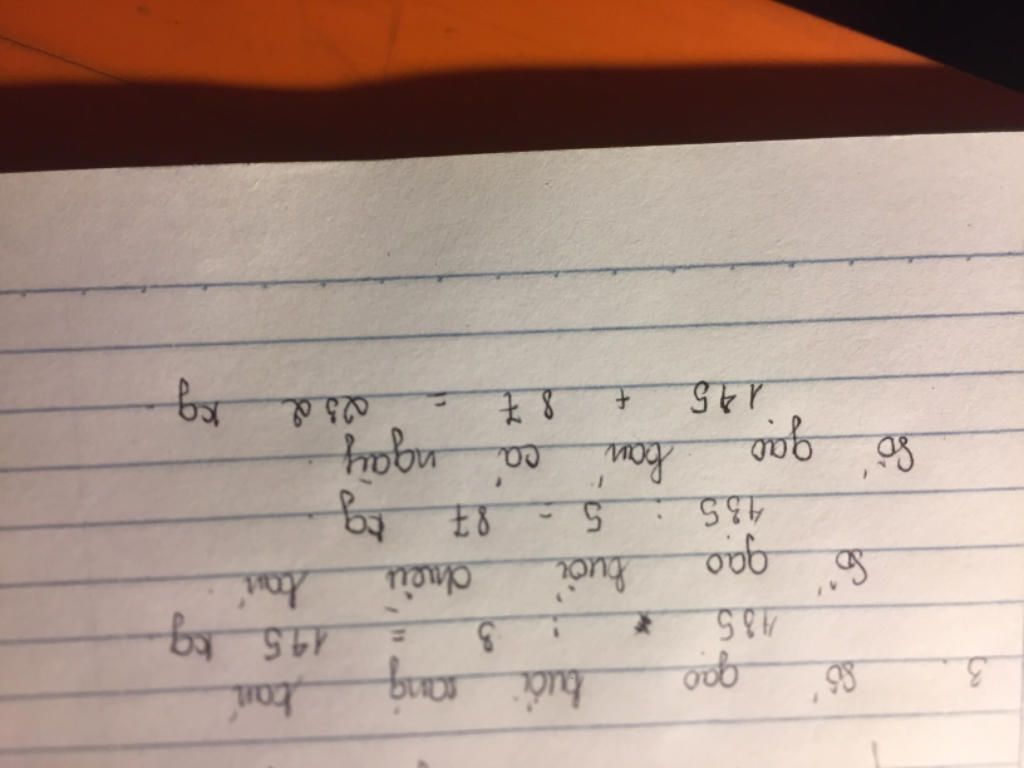 3. Số gạo buổi sáng bán
435 : 3 = 145 kg
Số gạo buổi chiều bán
435 : 5 = 87 kg.
Số gạo bán cả ngày
145 + 87 = 232 kg